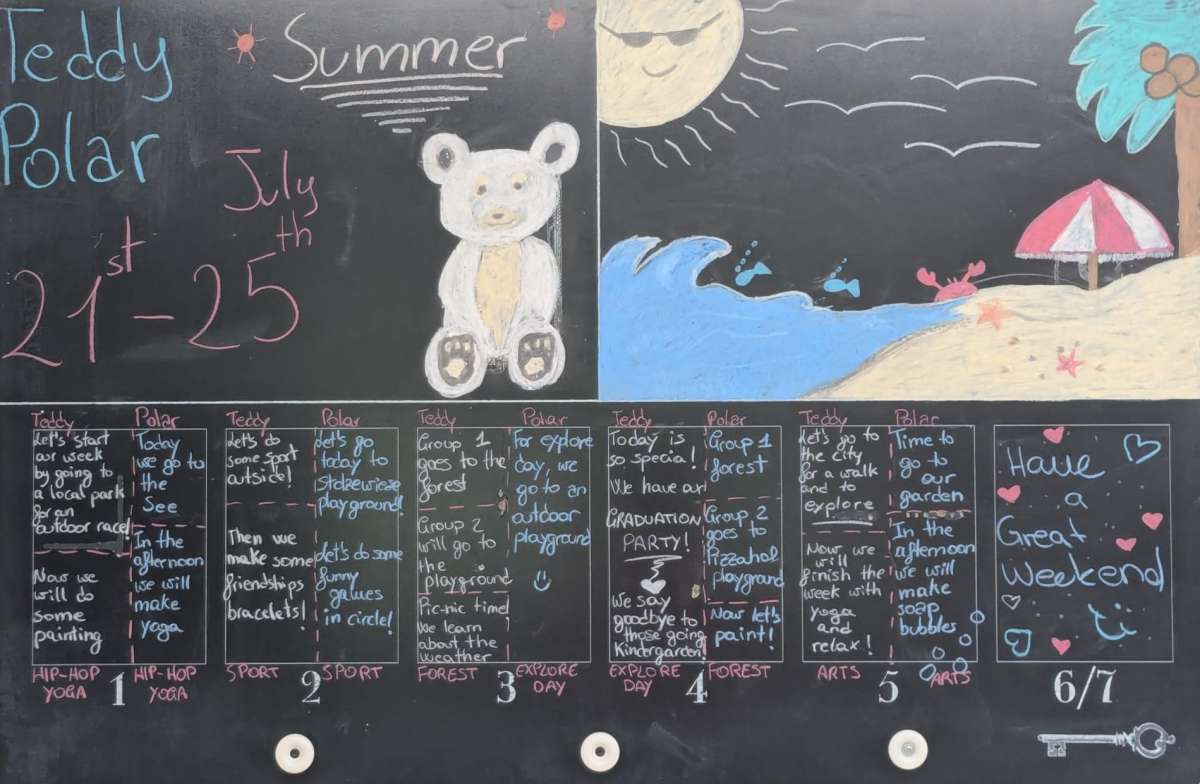 Teddy
Polar
Summer
July
21st - 25th
Teddy
Let's start
our week
by going to
a local park
for an
outdoor race!
Now we
will do
some
painting
HIP-HOP
YOGA
Polar
Today
we go to
the
See
In the
afternoon
we will
make
yoga
HIP-HOP
YOGA
1
Teddy
Let's do
some sport
outside!
Then we
make some
friendships
bracelets!
SPORT
Polar
Let's go
today to
playground!
Let's do some
funny
games
in circle!
SPORT
2
Teddy
Group 1
goes to the
forest
Group 2
will go to
the
playground
Pic-nic time!
We learn
about the
weather
FOREST
Polar
For explore
day, we
go to an
outdoor
playground
EXPLORE
DAY
3
Teddy
Today is
so special!
We have our
GRADUATION
PARTY!
We say
goodbye to
those going
Kindergarden!
EXPLORE
DAY
Polar
Group 1
forest
Group 2
goes to
playground
Now let's
paint!
FOREST
4
Teddy
Let's go to
the city
for a walk
and to
explore
Now we
will
finish the
week with
yoga
and
relax!
ARTS
Polar
Time to
go to
our
garden
In the
afternoon
we will
make
soap
bubbles
ARTS
5
Have
a
Great
Weekend
6/7